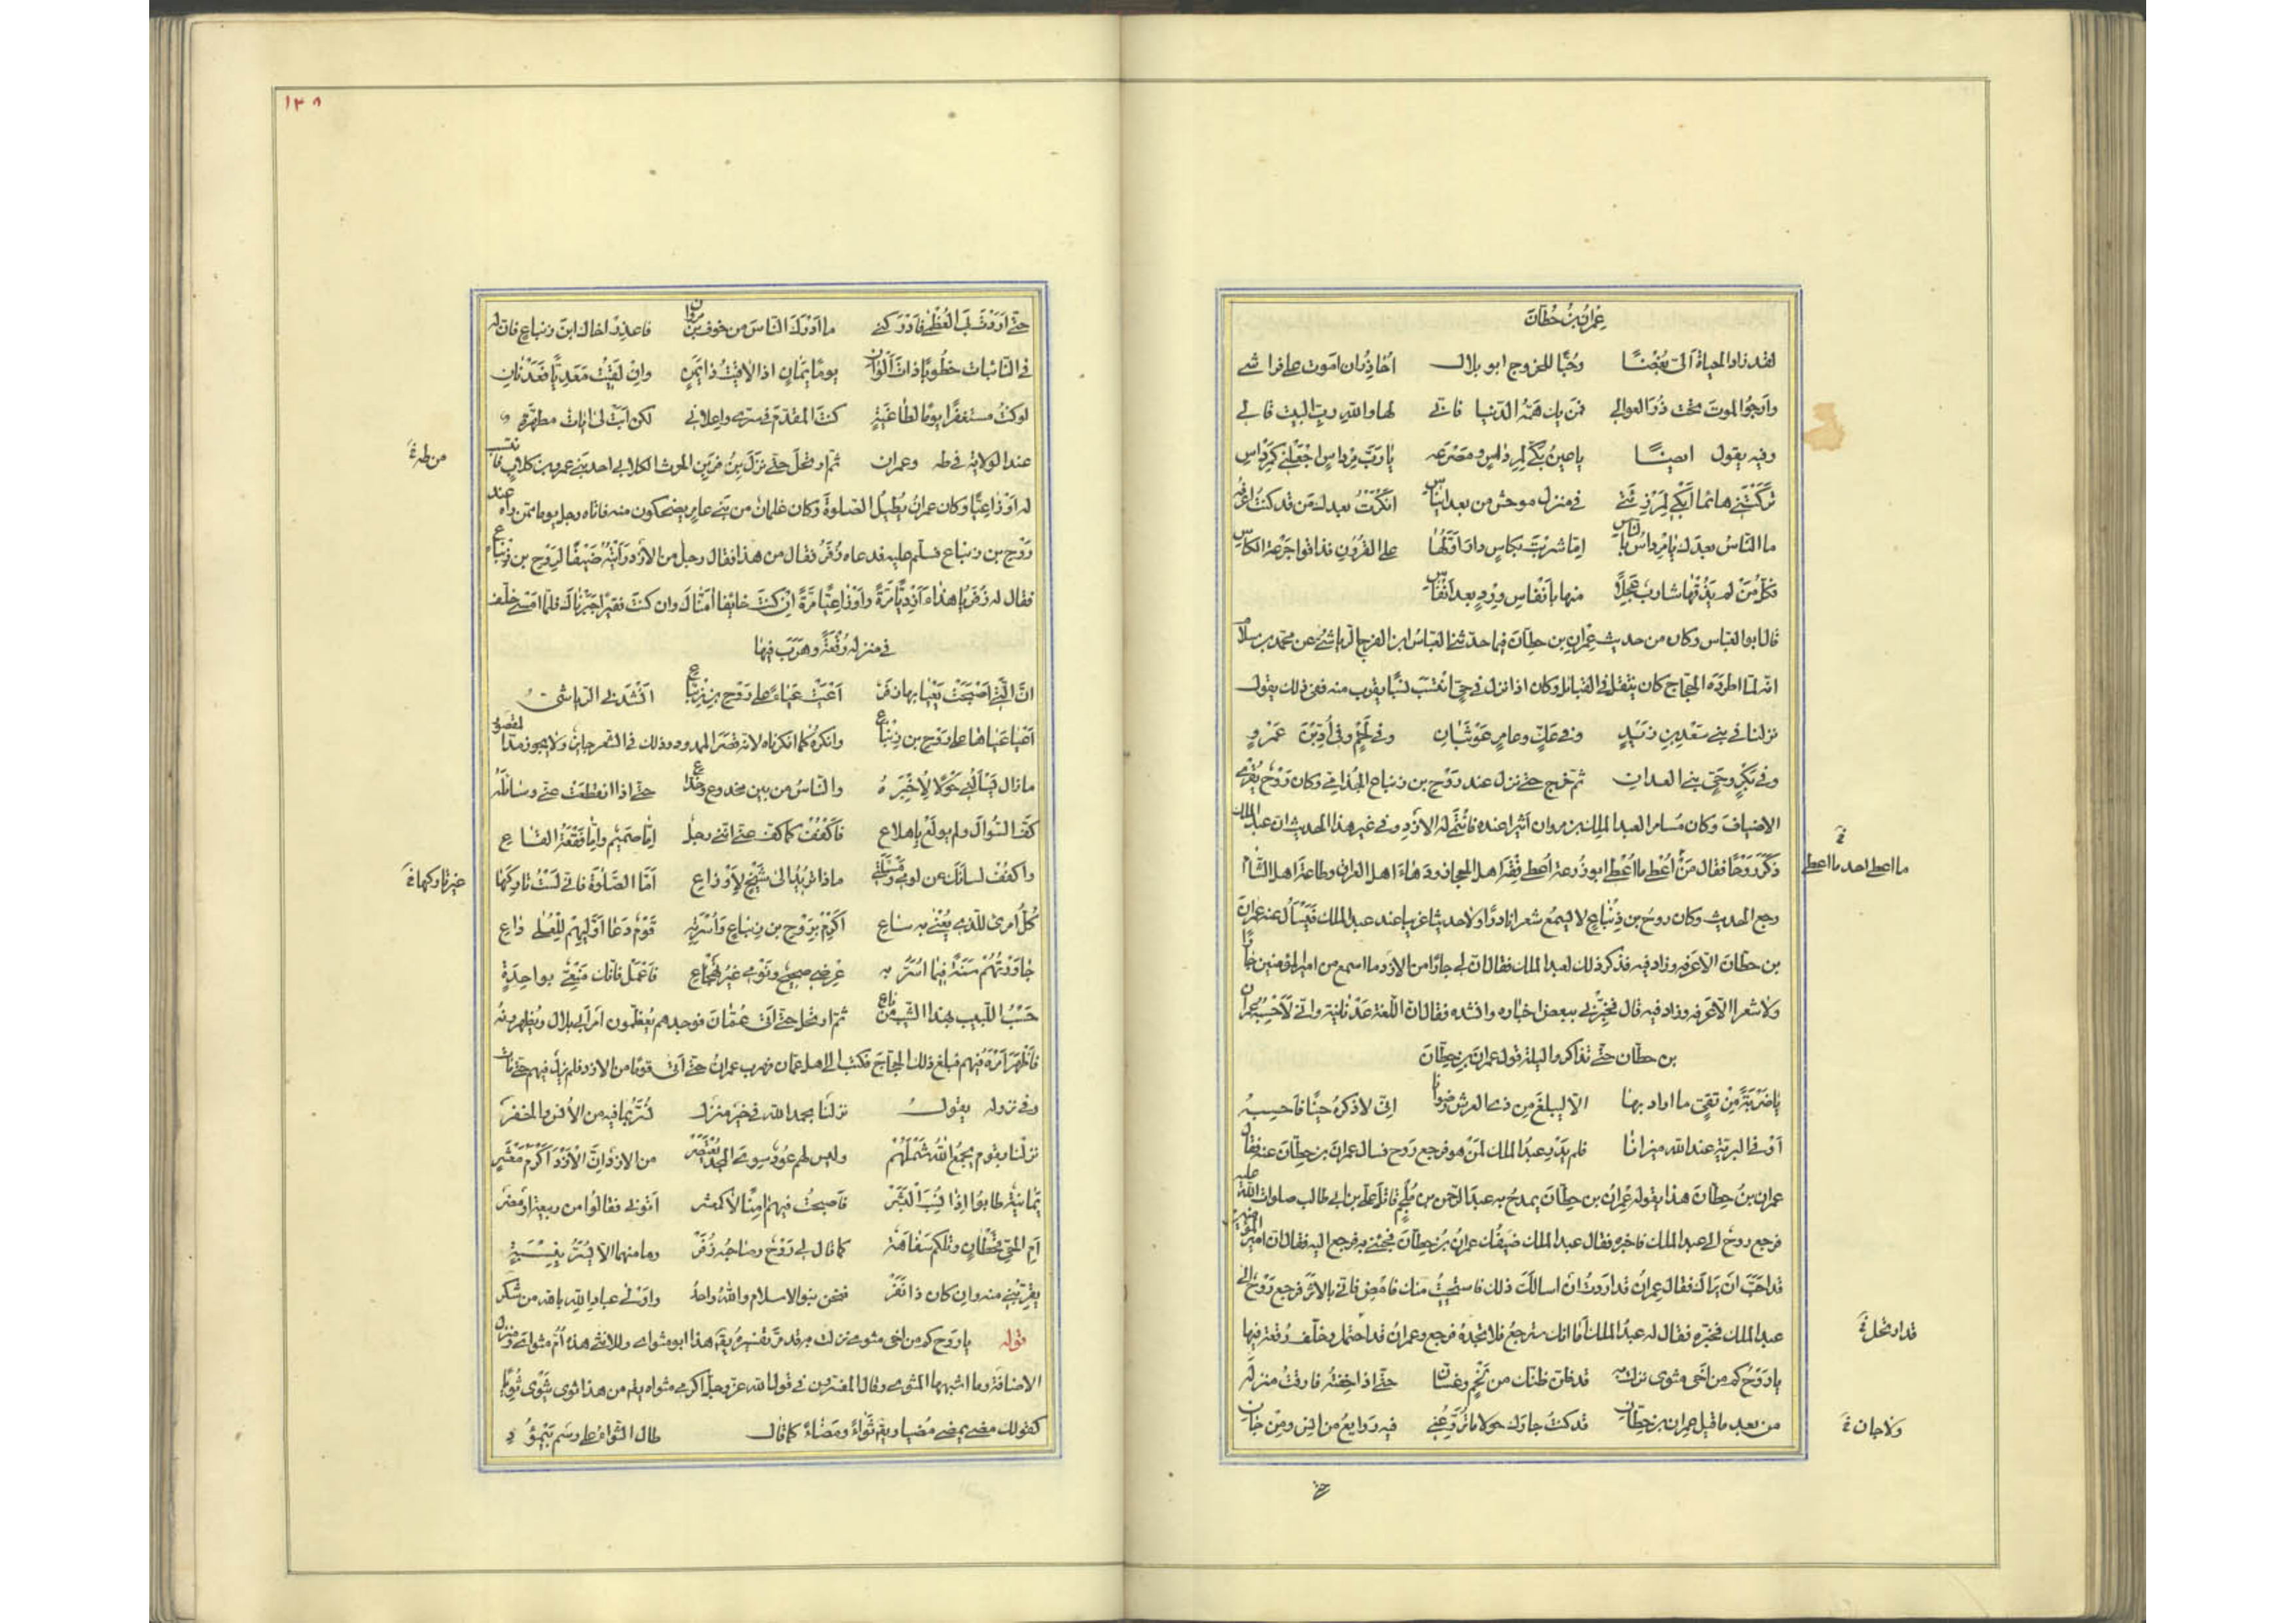 عِمْرانُ بنُ حِطّانَ
لقد زاد الحياةَ اَلىّ بُغْضًا وحُبًّا للخروج ابو بلال اُحَاذِرُ ان اموت على فراشى
وارجُوا الموتَ تحت ذُرَا العوالى فمن يك هَمُّهُ الدّنيا فانّى لها واللهِ ربِّ البيت قالى
وفيه يقول ايضًا ياعينُ بكّى لِمِرْداسٍ ومَصْرَعِه يا رَبَّ مِرْداسٍ اجْعَلْنى كَمِرْداسِ
تَرَكْتَنى هائما اَبْكى لِمَرْزِئَتى فى منزل موحش من بعد ايناس انكَرْتُ بعدك من قد كنتُ اعرفه
ما الناسُ بعدك يا مِرْداسُ بالناس امّا شربْتَ بكاسٍ دار اوّلُها على القرون فذاقوا جرعة الكاس
فكلّ من لم يَذُقْها شاربٌ عَجِلاً منها بأنفاس وِرْدٍ بعد انفاس
قال ابو العباس وكان من حديث عِمْران بن حطّان فيما حدّثنى العبّاسُ ابن الفرج الرياشىُّ عن محمد بن سلام
انّه لمّا اطرَدَه الحجّاج كان يتنقّل فى القبائل وكان اذا نزل فى حىّ انتسب نسبًا يقرب منه ففى ذلك يقول
نزلنا فى بنى سَعْدِ بنِ زَيْدٍ وفى عَكٍّ وعامرِ عَوْبَثَانِ وفى لَخْمٍ وفى اُدَدَ بْنَ عَمْرٍو
وفى بَكْرٍ وحىّ بنى العدان ثم خرج حتى نزل عند رَوْح بن زنباع الجُذامى وكان رَوْحٌ يُقْرِى
الاضياف وكان مُسامرا لعبد الملك بن مروان اثيرا عنده فانتمى له الازد وفى غير هذا الحديث ان عبد الملك
ذكَر رَوْحًا فقال مَنْ اُعْطِىَ ما اُعْطِىَ ابو زُرعة اُعطى فِقْهَ اهل الحجاز ودَهاءَ اهل العراق وطاعة اهل الشام
رجع الحديث وكان روحُ بن زِنْباعٍ لا يسمع شعرا نادرا ولا حديثا غريبا عند عبد الملك فَيَسْأل عنه عمران
بن حطّان الاّ عرفه وزاد فيه فذكر ذلك لعبد الملك فقال انّ لى جارًا من الازد ما اسمع من امير المؤمنين خبرًا
ولا شعرا الاّ عَرَفه وزاد فيه قال فخبّرنى ببعض اخباره وانشده فقال انّ اللّغة عَدْنانيّة وانّى لَاَحْسِبُهُ عمران
بن حطّان حتّى تذاكروا ليلة قول عمران بن حِطّانَ
ياضَرْبَةً مِنْ تَقىٍّ ما اراد بها الاّ ليبلغ من ذى العرش رضوانا انّى لاذكرُهُ حِينًا فَاَحسِبُه
اَوْفى البريّةِ عند الله ميزانا فلم يَدْرِ عبدُ الملك لِمَنْ هو فرجع رَوْح فسال عمران بن حِطّان عنه فقال
عمران بنُ حِطّان هذا يقوله عِمْرانُ بن حِطّان يمدح به عبد الرحمن بن مُلْجَم قاتل علىّ بن ابى طالب صلوات الله عليه
فرجع روحٌ الى عبد الملك فاخبره فقال عبد الملك ضيفُك عمرانُ بن حِطّان فجئنى به فرجع اليه فقال انّ امير المؤمنين
قد احَبّ اَنْ يَراك فقال عِمرانُ قد اردتُ ان اسالك ذلك فاستحييتُ منك فامْضِ فانّى بالاثر فرجع رَوْحٌ الى
عبد الملك فخبّره فقال له عبدُ الملك اَما انّك سترجع فلا تجدُه فرجع وعمرانُ قد احتمل وخلّف رقعة فيها
يا رَوْحُ كم من اَخى مثوى نزلت به قد ظنّ ظنّك من لَخْمٍ وغسّان حتّى اذا خِفْتُه فارقتُ منزله
من بعد ما قيل عمران بن حِطّان قد كنتُ جارك حولا ما تُرَوِّعُنى فيه روايعُ من انس ومن جان
ما اعطى احد ما اعطى
قد ارتحل
ولا جان
حتى
١٣٨
حتّى اَرَدْتَ بىَ العُظْمى فاَدْرَكَنى ما اَدْرَكَ النّاسَ من خوف بن مروان فاعذِرْ اخاك ابنَ زنباع فانّ له
فى النائبات خطُوبًا ذاتَ اَلْوانِ يومًا يَمَانٍ اذا لاقيتُ ذا يَمَنٍ وان لقيتُ مَعَدِيًّا فَعَدْنانِ
لو كنتُ مستغفرًا يوما لطاغيةٍ كنت المقدّم فى سرى واعلانى لكن اَبَتْ لى ايات مطهّرة
عند الولاية فى طه وعمران ثم ارتحل حتى نزل بزُفَرِ بن الحرث الكلابى احد بنى عمرو بن كلاب فانتسب
له اَوْزاعيًّا وكان عمرانُ يُطيلُ الصلوة وكان غلمان من بنى عامر يضحكون منه فاتاه رجل يوما ممن راه عند
رَوْح بن زنباع فسلّم عليه فدعاه زُفَرُ فقال من هذا فقال رجل من الازد رايتُه ضيفًا لرَوْح بن زنباع
فقال له زُفَر يا هذا اَزْدِيًّا مَرّةً واَوْزاعيًّا مَرّةً ان كنت خائِفا اَمَنّاك وان كنت فقيرا جَبَرْناك فلمّا امسى خلّف
فى منزله رُقْعَةً وهَرَب فيها
انّ الّتى اَصْبَحَتْ يَعْيا بها زفر اَعْيَتْ عَيَاءً على رَوْحِ بن زنباع اَنْشَدَنى الرياشىّ
اَعْيا عَياها على رَوْح بن زنباع وانكره كما انكرناه لانه قصَر الممدود وذلك فى الشعر جايز ولا يجوز مدّ المقصور
ما زال يَسْاَلُنى حَوْلاً لِاُخْبِرَهُ والناسُ من بين مخدوع وخدّاع حتى اذا انقطعت عنّى وسائلُه
كَفّ السُّوالَ ولم يولَعْ باهلاع فاكْفُفْ كما كفّ عنّى انّنى رجل اِمّا صَميمٌ واِمّا فَقْعَةُ القاع
واكفُفْ لسانك عن لومى ومسْئَلتى ماذا تريدُ الى شَيْخٍ لِاَوْزاعِ اَمّا الصّلوة فانّى لستُ تاركَها
كلُّ امرئ للّذى يُعْنى به ساع اَكْرِمْ بِرَوْح بن زِنباع واُسْرَتِه قومٌ دَعا اَوّليهِم لِلْعُلى داع
جاوَرْتُهُمْ سَنَةً فيما اُسَرُّ به عِرْضى صحيحٌ ونَوْمى غيرُ تَهْجاع فاعْمَلْ فانّك مَنْعِىٌّ بواحدةٍ
حَسْبُ اللّبيب بهذا الشَّيب من ناع ثمّ ارتحل حتّى اَتى عُمَانَ فوجدهم يُعظّمون امر ابى بلال ويُظهرونه
فاَظْهَرَ اَمْرَهُ فيهم فبلغ ذلك الحجّاجَ فكتب الى اهل عمان فهرب عمران حتى اَتى قومًا من الازد فلم يزل فيهم حتى مات
وفى نزوله يقول نزلْنَا بحمد الله فى خير منزل نُسَرُّ بما فيه من الاُنس والخَفَر
نزلنا بقوم يجمعُ اللهُ شَمْلَهُمْ وليس لهم عُودٌ سوى المجد يُعْتَصَر من الازد اِنّ الاَزْدَ اَكْرَمُ مَعْشَرٍ
يَمَانيةٍ طابوا اذا نُسِبَ البَشَرْ فاَصبحتُ فيهم آمنًا لا كمعشر اَتَونى فقالوا من ربيعة او مضر
اَمِ الحىّ قحطانٍ وتلكم سَفاهَة كما قال لى رَوْحٌ وصاحبُه زُفَرْ وما منهما الاّ يُسَرُّ بِنِسْبَةٍ
يُقَرِّبنى منه وان كان ذا نَفَرْ فنحن بنو الاسلام واللهُ واحدٌ واَوْلى عباد الله بالله من شكر
قوله يا رَوْح كم من اخى مثوى نزلت به قد مرّ تفسيرهُ يقَ هذا ابو مثواى وللانثى هذه اُمّ مثواى ومنزل
الاضافة وما اشبهها المثوى وقال المفسّرون فى قول الله عزّ وجلّ اكرمى مثواه يقَ من هذا ثوى يَثْوِى ثُوِيًّا
كقولك مضى يمضى مُضيّا ويقَ ثَواءً ومَضَاءً كما قال طال الثَّواءُ على رسم بِيَمْؤُودِ
من طه
غير تاركها